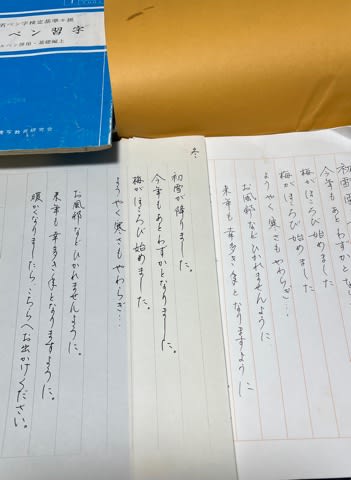 ペン習字
冬
初雪が降りました。
今年もあとわずかとなりました。
梅がほころび始めました。
ようやく寒さもやわらぎ…
お風邪などひかれませんように。
来年も幸多き年となりますように。
暖かくなりましたらこちらへお出かけください。
初雪降
今年もあとわずかとな
梅がほころび始めました
梅がほころび始めました
ようやく寒さもやわらぎ…
お風邪などひかれませんように
来年も幸多き年となりますように